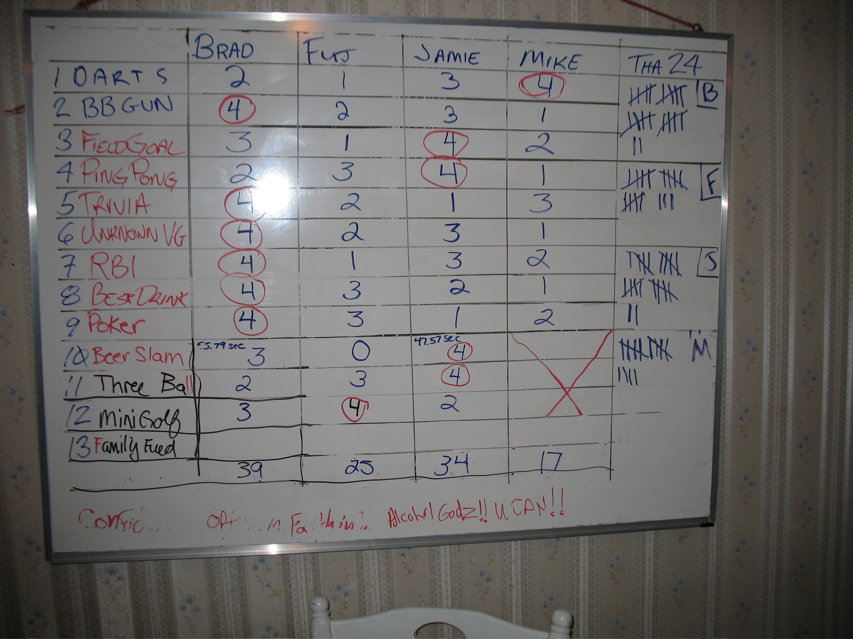 BRAD FUJ JAMIE MIKE THA 24
1 DARTS 2 1 3 4 B
2 BB GUN 4 2 3 1
3 FIELD GOAL 3 1 4 2
4 PING PONG 2 3 4 1 F
5 TRIVIA 4 2 1 3
6 UNKNOWN VG 4 2 3 1
7 RBI 4 1 3 2 J
8 BEST DRINK 4 3 2 1
9 Poker 4 3 1 2
10 Beer Slam 55.79 SEC 3 0 47.57 SEC 4 M
11 Three Ball 2 3 4
12 Mini Golf 3 4 2
13 Family Fued
39 25 34 17
Alcohol Godz!! U CAN!!